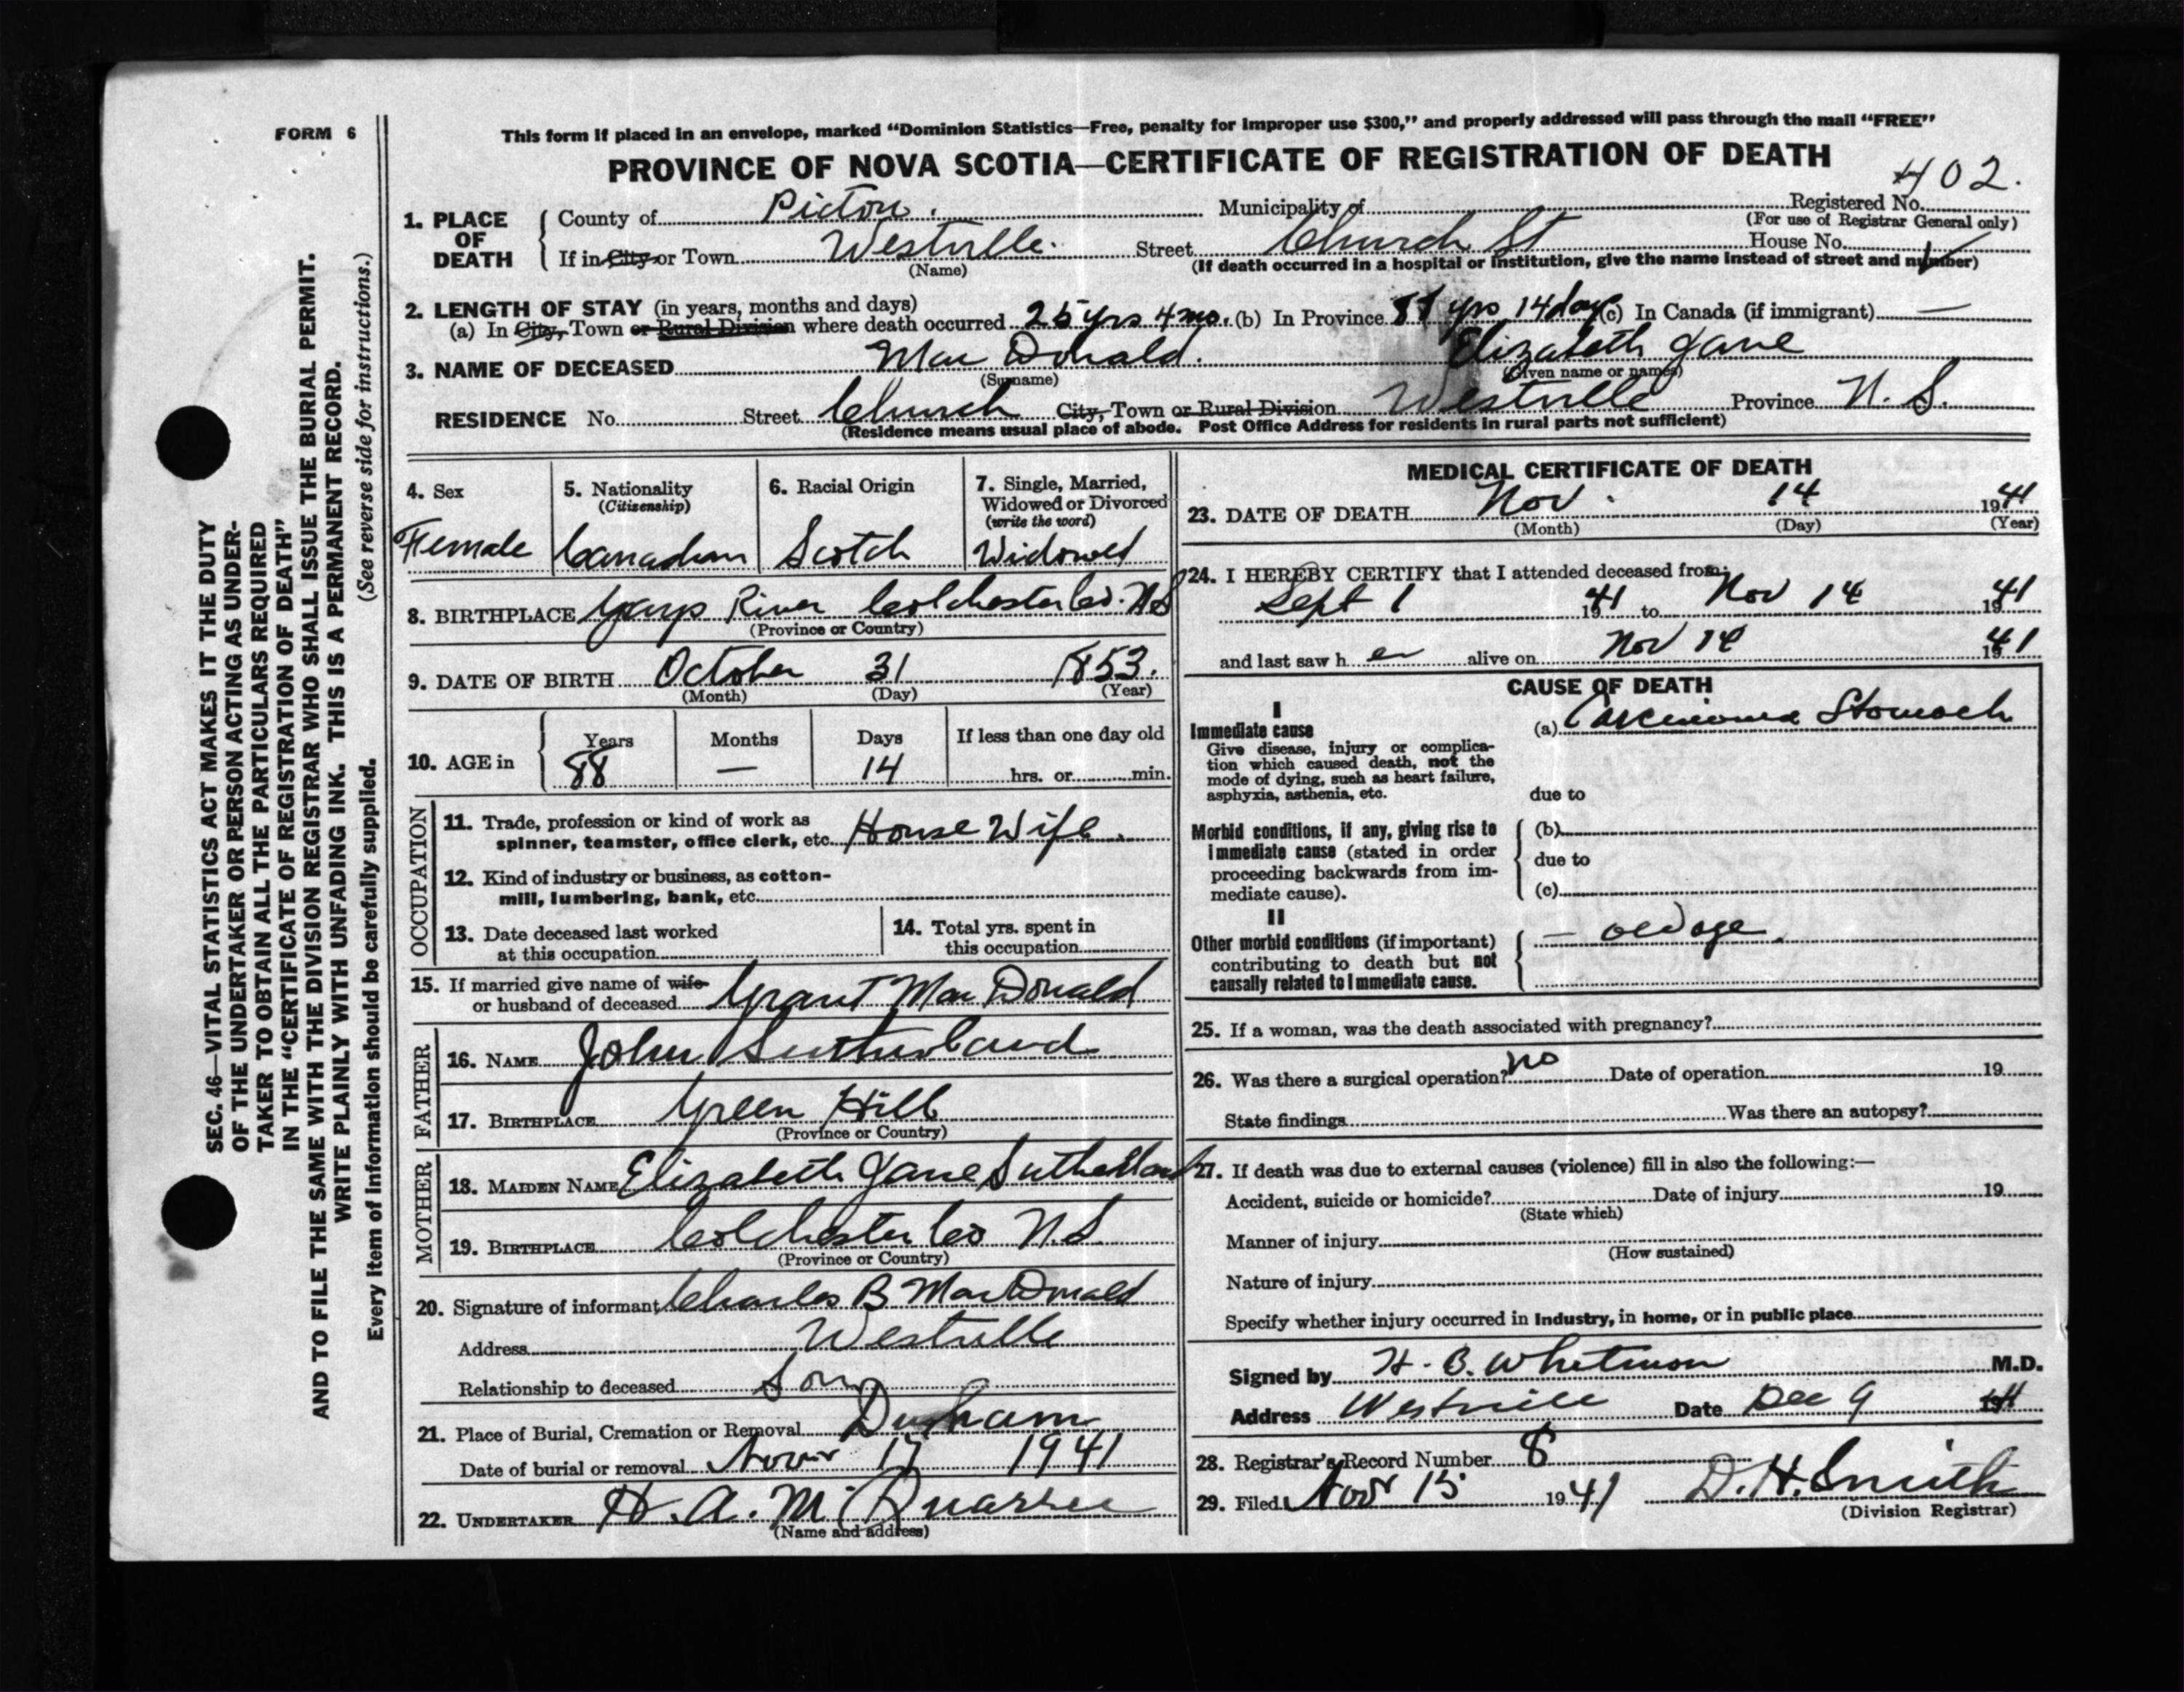 FORM 6
This form if placed in an envelope, marked "Dominion Statistics—Free, penalty for improper use $300," and properly addressed will pass through the mail "FREE"
PROVINCE OF NOVA SCOTIA—CERTIFICATE OF REGISTRATION OF DEATH
402.
1. PLACE OF DEATH
County of Pictou. Municipality of Registered No.
(For use of Registrar General only)
If in City or Town Westville. Street Church St House No.
(Name) (If death occurred in a hospital or institution, give the name instead of street and number)
2. LENGTH OF STAY (in years, months and days)
(a) In City, Town or Rural Division where death occurred 25 yrs 4 mo. (b) In Province yrs 14 days (c) In Canada (if immigrant) —
3. NAME OF DECEASED Mac Donald. Elizabeth Jane
(Surname) (Given name or names)
RESIDENCE No. Street Church City, Town or Rural Division Westville Province N. S.
(Residence means usual place of abode. Post Office Address for residents in rural parts not sufficient)
4. Sex
Female
5. Nationality
(Citizenship)
Canadian
6. Racial Origin
Scotch
7. Single, Married,
Widowed or Divorced
(write the word)
Widowed
8. BIRTHPLACE River Colchester Co. N S
(Province or Country)
9. DATE OF BIRTH October 31 1853.
(Month) (Day) (Year)
10. AGE in
Years Months Days If less than one day old
88 — 14 hrs. or min.
OCCUPATION
11. Trade, profession or kind of work as
spinner, teamster, office clerk, etc. House Wife.
12. Kind of industry or business, as cotton-
mill, lumbering, bank, etc.
13. Date deceased last worked
at this occupation
14. Total yrs. spent in
this occupation
15. If married give name of wife
or husband of deceased Grant Mac Donald
FATHER
16. NAME John Sutherland
17. BIRTHPLACE Green Hill
(Province or Country)
MOTHER
18. MAIDEN NAME Elizabeth Jane Sutherland
19. BIRTHPLACE Colchester Co N.S
(Province or Country)
20. Signature of informant Charles B MacDonald
Address Westville
Relationship to deceased Son
21. Place of Burial, Cremation or Removal Durham
Date of burial or removal Novr 17 1941
22. UNDERTAKER H. A. McQuarrie
(Name and address)
MEDICAL CERTIFICATE OF DEATH
23. DATE OF DEATH Nov. 14 1941
(Month) (Day) (Year)
24. I HEREBY CERTIFY that I attended deceased from:
Sept 1 1941 to Nov 14 1941
and last saw h er alive on Nov 14 1941
CAUSE OF DEATH
I
Immediate cause
Give disease, injury or complica-
tion which caused death, not the
mode of dying, such as heart failure,
asphyxia, asthenia, etc.
(a) Carcinoma Stomach
due to
Morbid conditions, if any, giving rise to
immediate cause (stated in order
proceeding backwards from im-
mediate cause).
(b)
due to
(c)
II
Other morbid conditions (if important)
contributing to death but not
causally related to immediate cause.
— old age.
25. If a woman, was the death associated with pregnancy?
26. Was there a surgical operation? no Date of operation 19
State findings Was there an autopsy?
27. If death was due to external causes (violence) fill in also the following:—
Accident, suicide or homicide? Date of injury 19
(State which)
Manner of injury
(How sustained)
Nature of injury
Specify whether injury occurred in industry, in home, or in public place
Signed by H. B. Whitman M.D.
Address Westville Date Dec 9 1941
28. Registrar's Record Number 8
29. Filed Novr 15 1941 D. H. Smith
(Division Registrar)
SEC. 46—VITAL STATISTICS ACT MAKES IT THE DUTY
OF THE UNDERTAKER OR PERSON ACTING AS UNDER-
TAKER TO OBTAIN ALL THE PARTICULARS REQUIRED
IN THE "CERTIFICATE OF REGISTRATION OF DEATH"
AND TO FILE THE SAME WITH THE DIVISION REGISTRAR WHO SHALL ISSUE THE BURIAL PERMIT.
WRITE PLAINLY WITH UNFADING INK. THIS IS A PERMANENT RECORD.
(See reverse side for instructions.)
Every item of information should be carefully supplied.